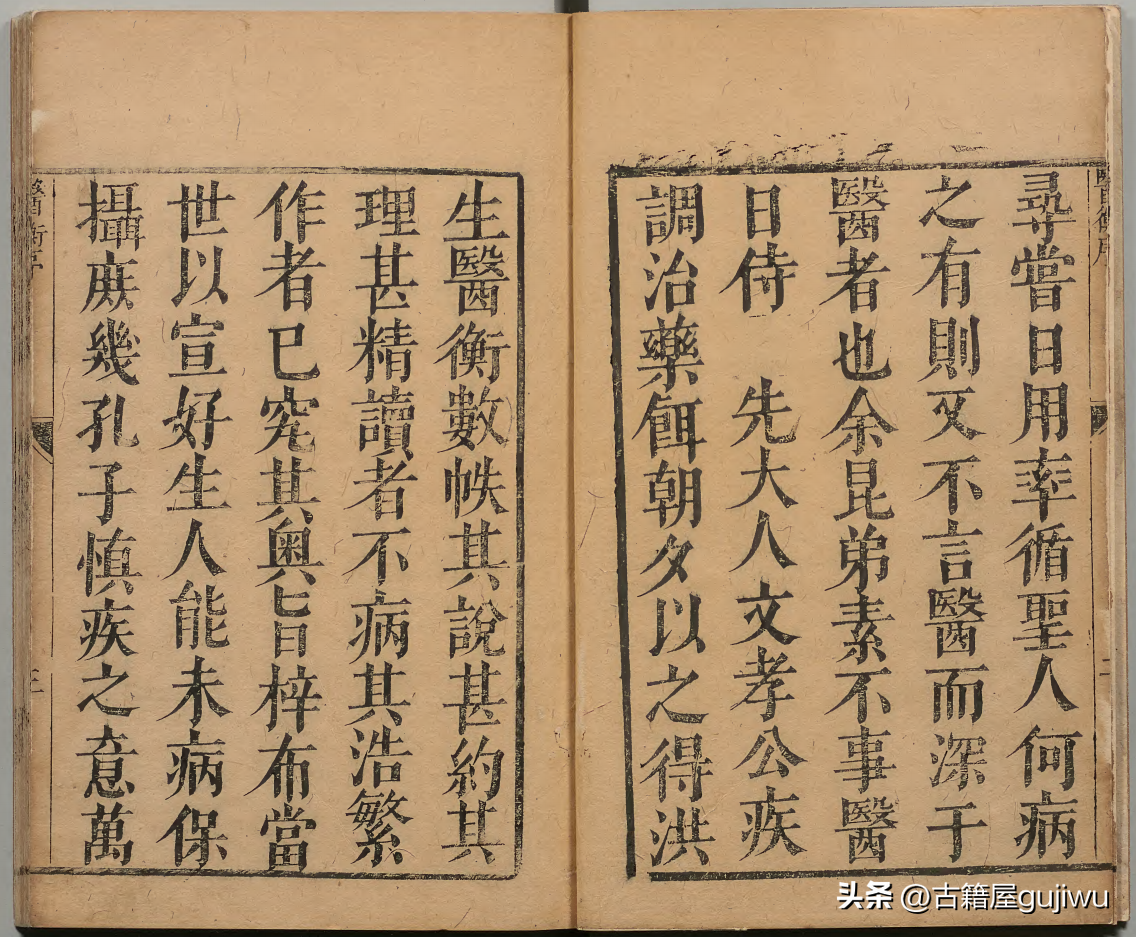 尋嘗日用率循聖人何病
之有則又不言醫而深于
醫者也余昆弟素不事醫
日侍 先大人文孝公疾
調治藥餌朝夕以之得洪
生醫衡數帙其說甚約其
理甚精讀者不病其浩繁
作者已究其奧旨梓布當
世以宣好生人能未病保
攝庶幾孔子慎疾之意萬
醫衡序
頭条 @古籍屋gujiwu